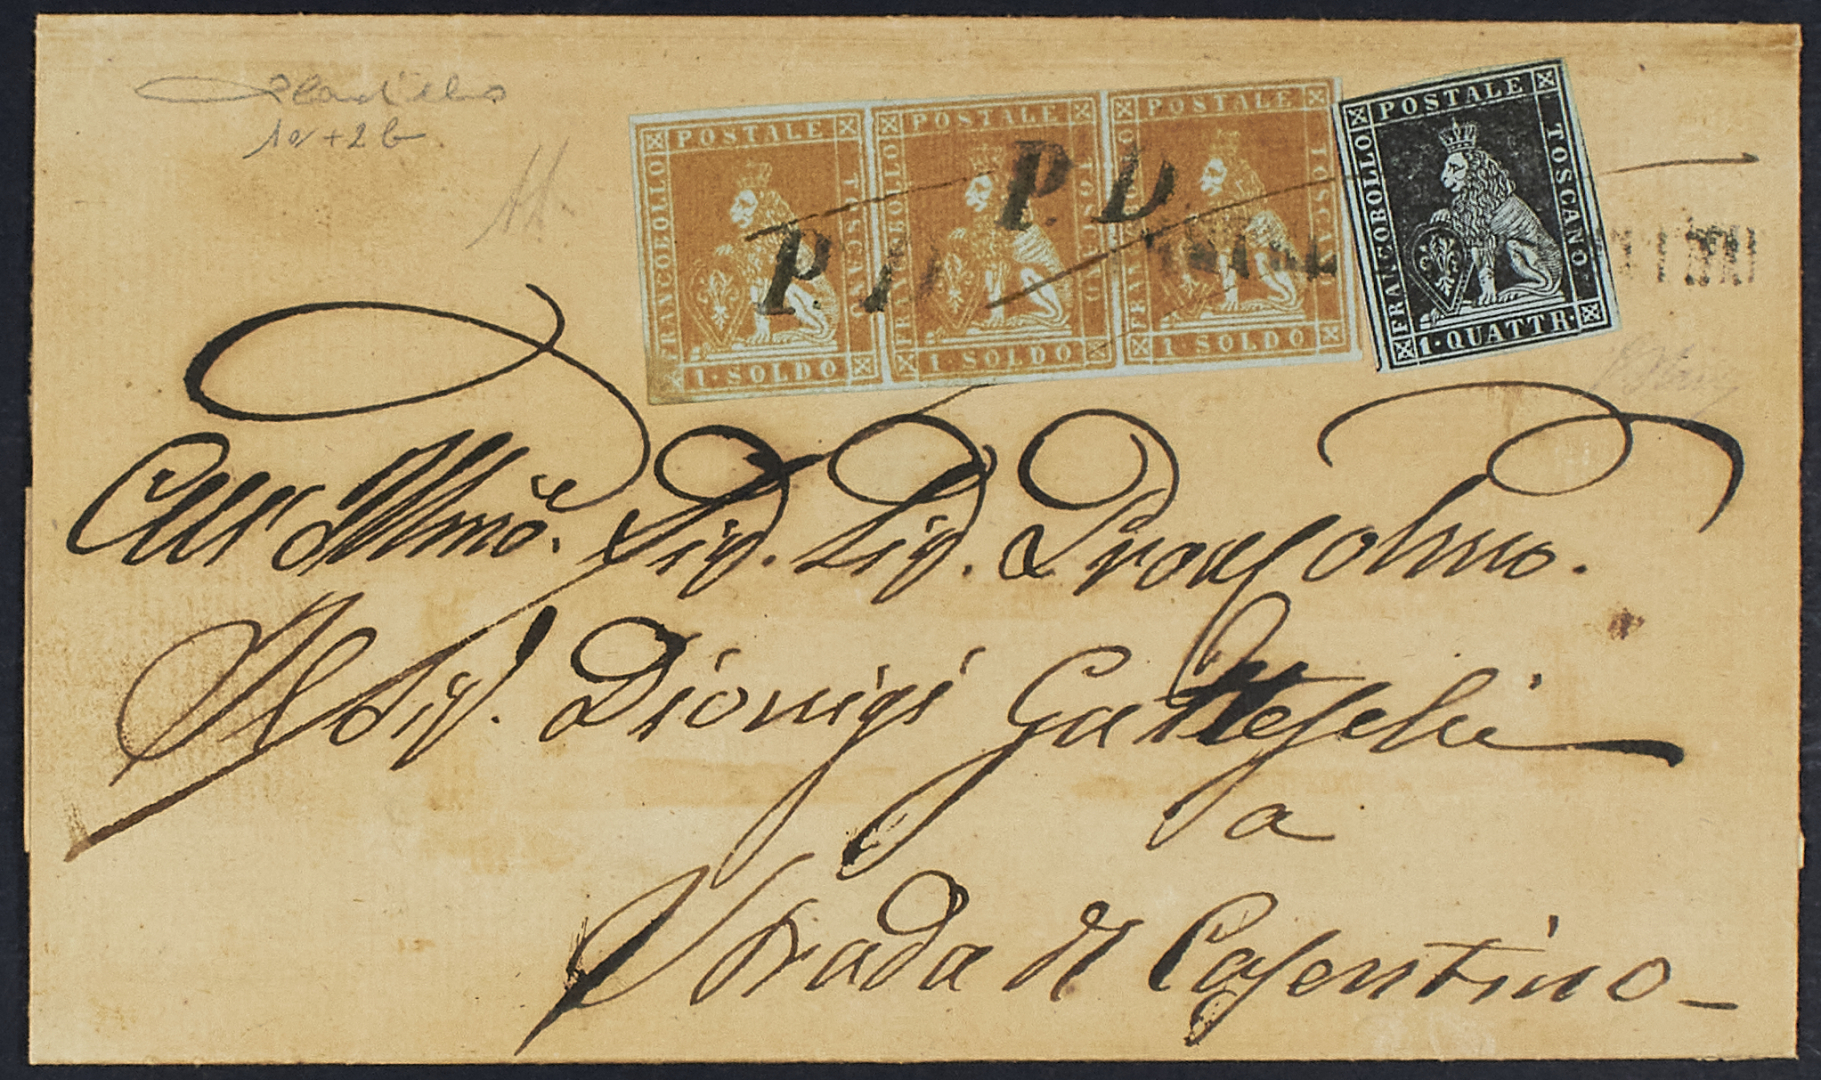 1a + 2b
FRANCOBOLLO POSTALE TOSCANO 1·SOLDO
FRANCOBOLLO POSTALE TOSCANO 1 SOLDO
FRANCOBOLLO POSTALE TOSCANO 1 SOLDO
FRANCOBOLLO POSTALE TOSCANO 1·QUATTR·
P. D.
P. D.
All' Illmo. Sig. Sig. Pron Colmo.
Il Sig. Dionigi Gatteschi
a
Strada di Casentino